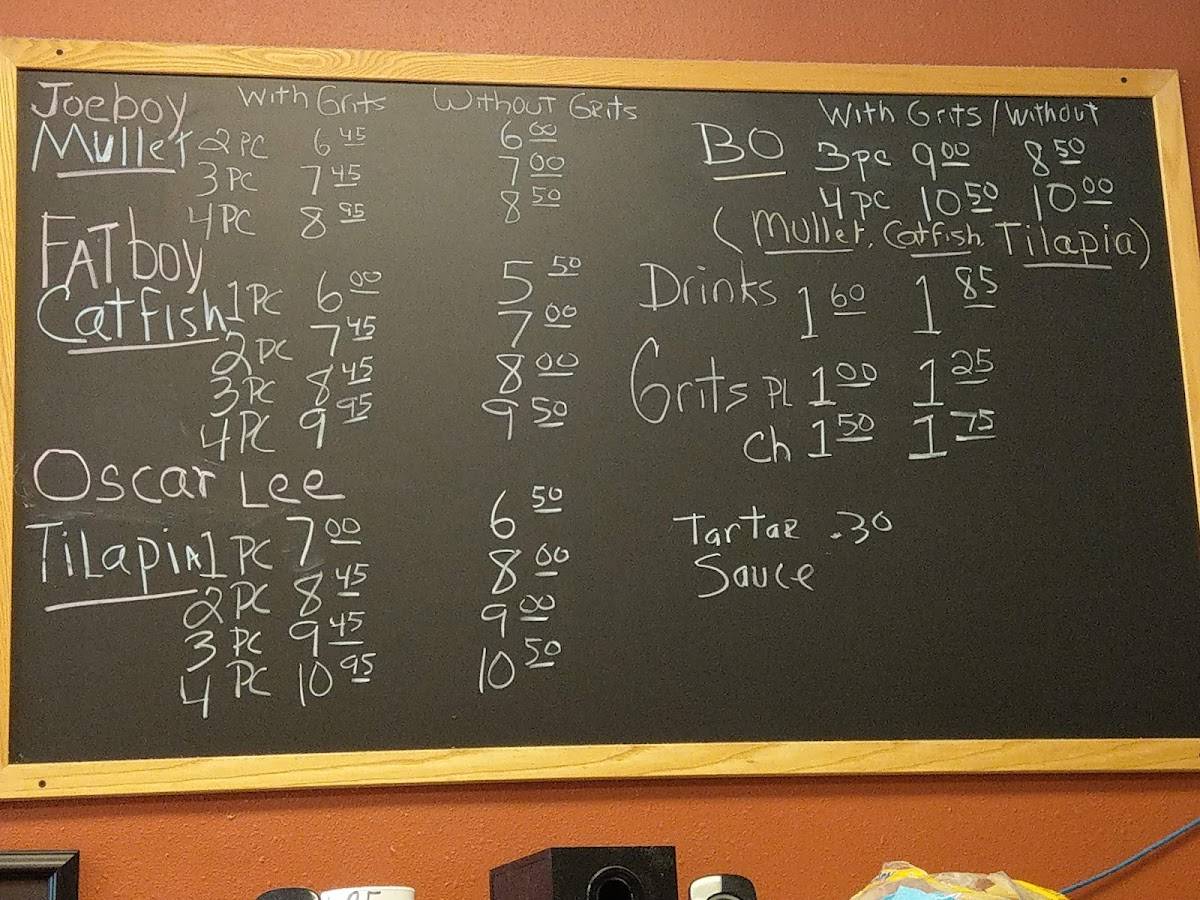 Joeboy With Grits Without Grits
Mullet 2 PC 6 45 6 00
3 PC 7 45 7 00
4 PC 8 95 8 50
FATboy
Catfish 1 PC 6 00 5 50
2 PC 7 45 7 00
3 PC 8 45 8 00
4 PC 9 95 9 50
Oscar Lee
Tilapia 1 PC 7 00 6 50
2 PC 8 45 8 00
3 PC 9 45 9 00
4 PC 10 95 10 50
With Grits / Without
BO 3 pc 9 00 8 50
4 PC 10 50 10 00
(Mullet, Catfish, Tilapia)
Drinks 1 60 1 85
Grits PL 1 00 1 25
Ch 1 50 1 75
Tartar .30
Sauce